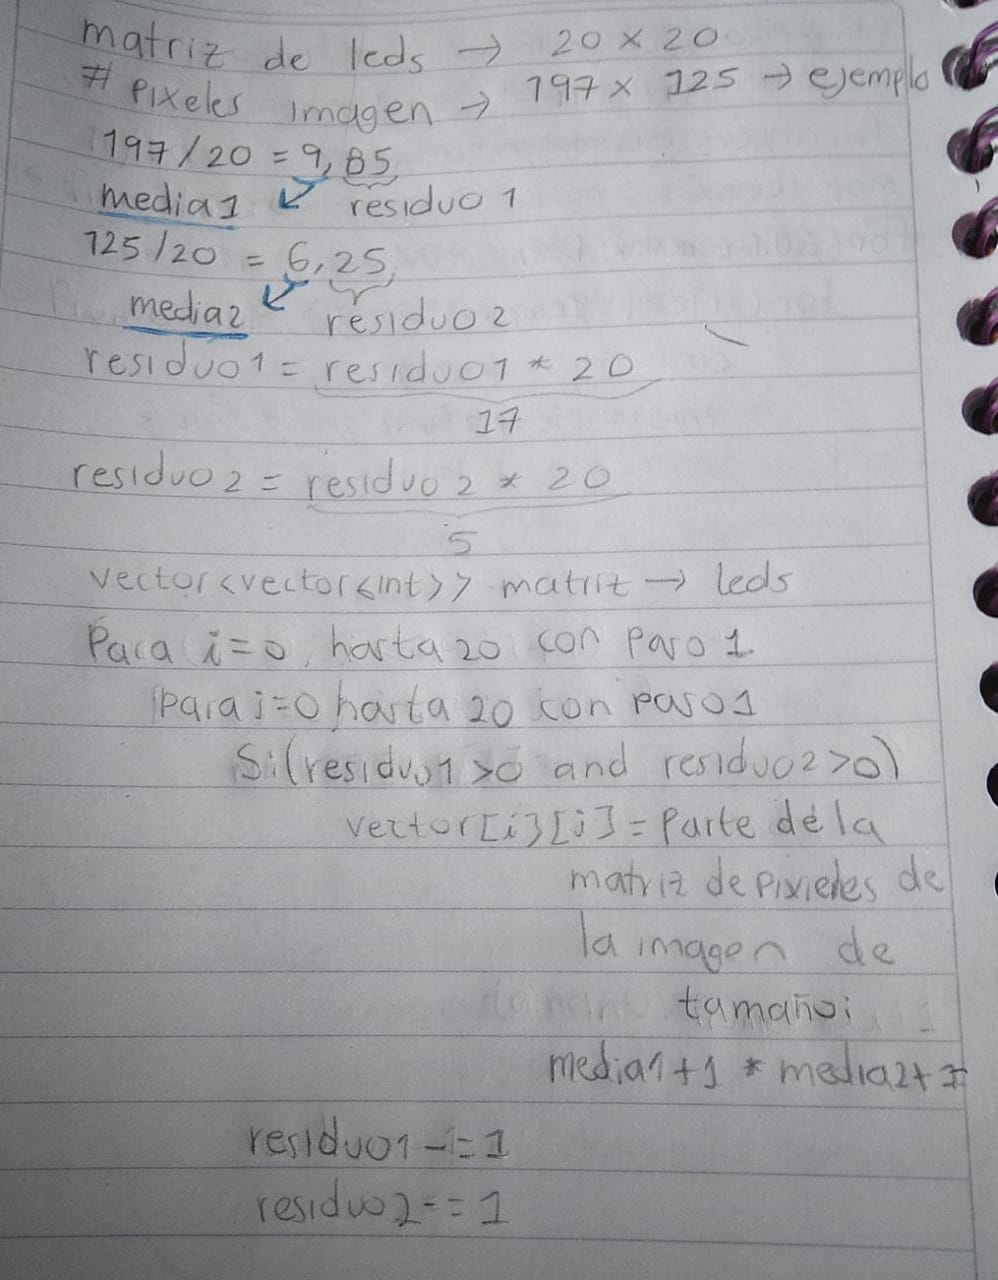 matriz de leds → 20 x 20
# Pixeles imagen → 197 x 125 → ejemplo
197/20 = 9,85
media1 residuo 1
125/20 = 6,25
media2 residuo2
residuo1 = residuo1 * 20
17
residuo2 = residuo2 * 20
5
vector<vector<int>> matriz → leds
Para i=0, hasta 20 con paso 1
para j=0 hasta 20 con paso1
Si(residuo1 >0 and residuo2 >0)
vector[i][j] = Parte de la
matriz de pixieles de
la imagen de
tamaño:
media1+1 * media2+1
residuo1 -= 1
residuo2 -= 1